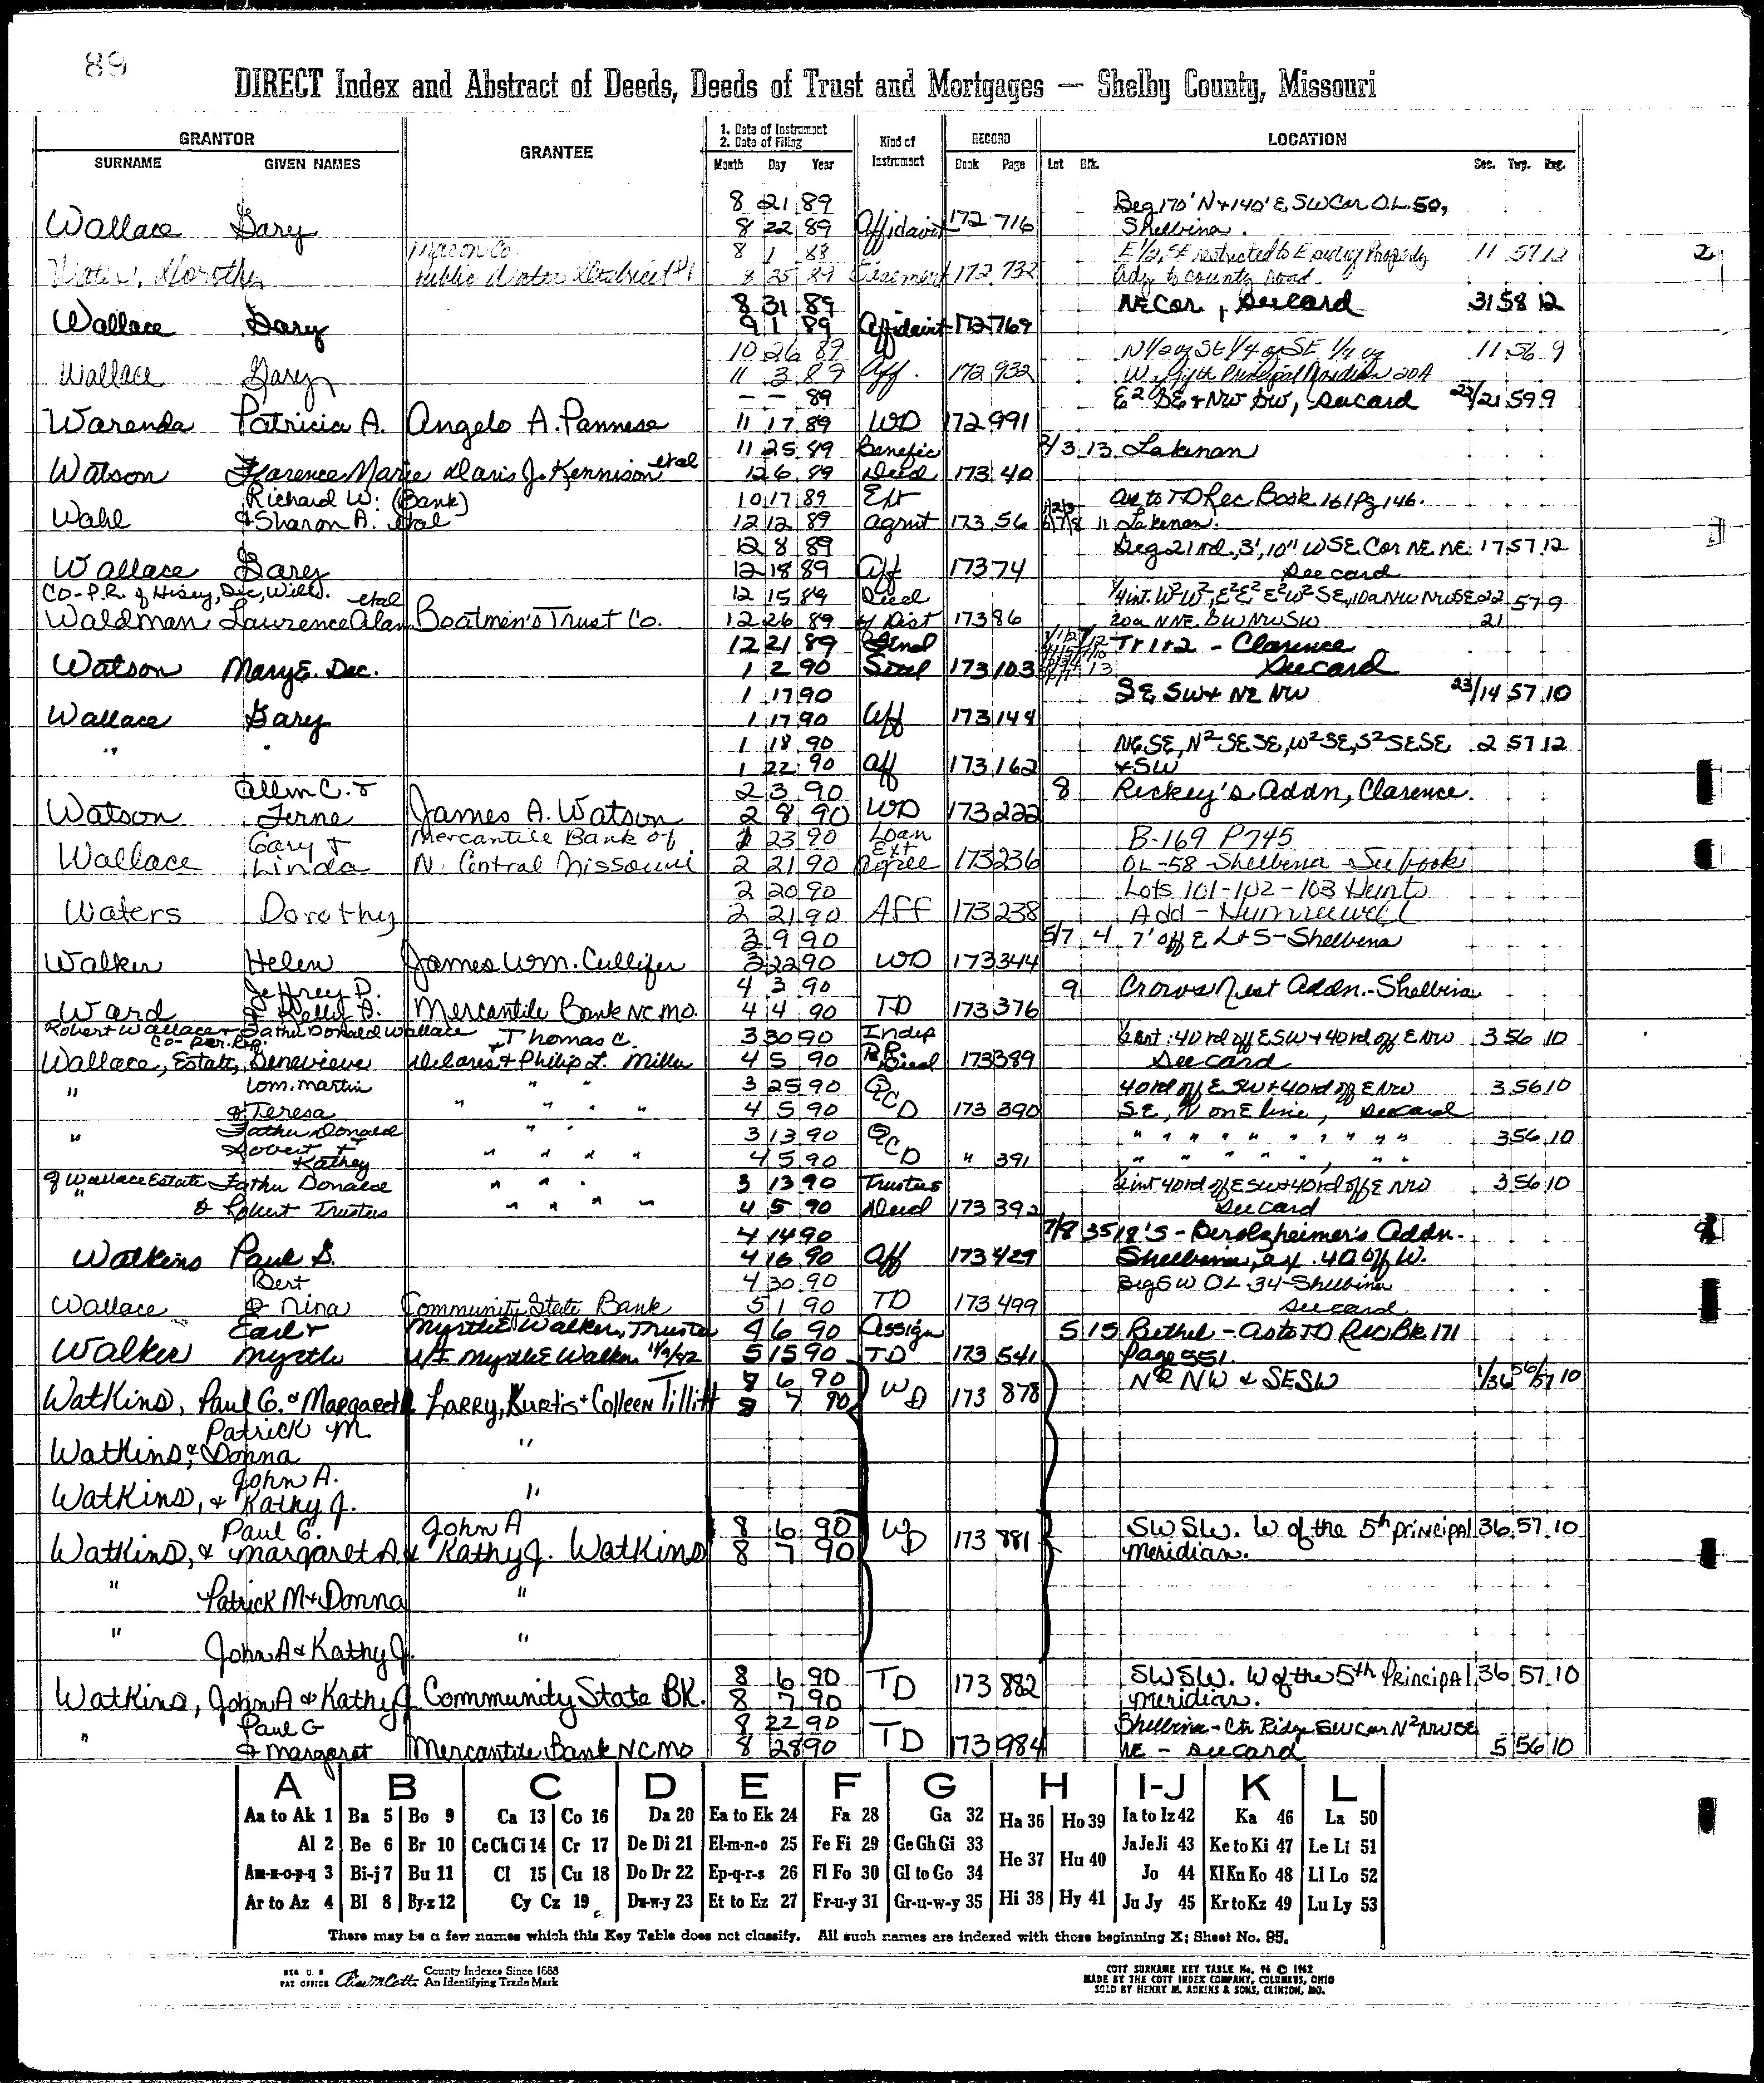 89
DIRECT Index and Abstract of Deeds, Deeds of Trust and Mortgages — Shelby County, Missouri
GRANTOR GRANTEE 1. Date of Instrument 2. Date of Filing Kind of Instrument RECORD LOCATION
SURNAME GIVEN NAMES Month Day Year Book Page Lot Blk. Sec. Twp. Rng.
8 21 89 Beg 170' N + 140' E SW Cor O.L. 50,
Wallace Gary 8 22 89 Affidavit 172 716 Shelbina.
Macon Co. 8 1 88 E 1/2, SE restricted to E side of Property 11 57 12
Dorothy Public Water District #1 8 25 89 Easement 172 732 adj. to county road.
8 31 89 NE Cor, See card 31 58 12
Wallace Gary 9 1 89 Affidavit 172 769
10 26 89 N 1/2 of SE 1/4 of SE 1/4 of 11 56 9
Wallace Gary 11 3 89 Aff. 172 932 W. Fifth Principal Meridian 20A
— — 89 E2 SE + NW SW, See card 22/21 59 9
Warenda Patricia A. Angelo A. Pannese 11 17 89 WD 172 991
11 25 89 Benefic 2/3 13 Lakenan
Watson Florence Marie Doris J. Kennison etal 12 6 89 Deed 173 40
Richard W. (Bank) 10 17 89 Ext as to TD Rec Book 161 Pg 146.
Wahl & Sharon A. etal 12 12 89 agmt 173 56 1/2/3 6/7/8 11 Lakenan.
12 8 89 Beg 21 rd, 3', 10" W SE Cor NE NE 17 57 12
Wallace Gary 12 18 89 Aff 173 74 See card
Co-P.R. of Hisey, Dec, Will. etal 12 15 89 Deed 1/4 int. W2 W2, E2 E2 E2 W2 SE, 10a NW NW SE 22 57 9
Waldman Laurence Alan Boatmen's Trust Co. 12 26 89 of Dist 173 86 20a N NE SW NW SW 21
12 21 89 Final Tr 1 + 2 - Clarence
Watson Mary E. Dec. 1 2 90 Settl 173 103 13 See card
1 17 90 SE SW + NE NW 23/14 57 10
Wallace Gary 1 17 90 Aff 173 148
" " 1 18 90 NE SE, N2 SE SE, W2 SE, S2 SE SE 2 57 12
1 22 90 aff 173 162 + SW
Allen C. + 2 3 90 8 Rickey's Addn, Clarence
Watson Ferne James A. Watson 2 8 90 WD 173 222
Gary + Mercantile Bank of 1 23 90 Loan Ext B-169 P745
Wallace Linda N. Central Missouri 2 21 90 Agree 173 236 OL-58 - Shelbina - See book
2 20 90 Lots 101-102-103 Hunt
Waters Dorothy 2 21 90 AFF 173 238 Add - Hunnewell
3 9 90 5/7 4 7' off E L+S - Shelbina
Walker Helen James Wm. Cullifer 3 22 90 WD 173 344
Jeffrey D. 4 3 90 9 Crows Nest Addn. - Shelbina
Ward & Kelly D. Mercantile Bank NC MO. 4 4 90 TD 173 376
Robert Wallace + Father Donald Wallace Co-Per. Rep. Thomas C. 3 30 90 Indep 1/2 int: 40 rd off E SW + 40 rd off E NW 3 56 10
Wallace, Estate, Genevieve + Delores + Philip L. Miller 4 5 90 PR Deed 173 389 See card
" Tom. Martin " " 3 25 90 QCD 40 rd off E SW + 40 rd off E NW 3 56 10
& Teresa " " " " 4 5 90 173 390 SE, N on E line, See card
" Father Donald " " 3 13 90 QCD " " " " " " " " " 3 56 10
Robert + Kathey " " " " 4 5 90 " 391 " " " " " " "
of Wallace Estate Father Donald " " " 3 13 90 Trustees 1/2 int 40 rd off E SW + 40 rd off E NW 3 56 10
" & Robert Trustees " " " " 4 5 90 Deed 173 392 See card
4 14 90 7/8 35 18' S - Berolzheimer's Addn.
Watkins Paul G. 4 16 90 Aff 173 429 Shelbina, ex. 40 off W.
Bert 4 30 90 Beg SW OL 34 - Shelbina
Wallace & Nina Community State Bank 5 1 90 TD 173 499 See card
Earl + Myrtle Walker, Trustee 4 6 90 Assign 5 15 Bethel - As to TD Rec Bk 171
Walker Myrtle U/I Myrtle Walker 11/9/82 5 15 90 TD 173 541 Page 551.
Watkins, Paul G. & Margaret A. Larry, Kurtis + Colleen Tillitt 8 6 90 WD 173 878 N2 NW & SE SW 1/36 56/57 10
8 7 90
Patrick M.
Watkins, & Donna "
John A.
Watkins, & Kathy J. "
Paul G. John A 8 6 90 WD SW SW. W of the 5th Principal 36 57 10
Watkins, & Margaret A. & Kathy J. Watkins 8 7 90 173 881 Meridian.
" Patrick M + Donna "
" John A & Kathy J. "
8 6 90 SW SW. W of the 5th Principal 36 57 10
Watkins, John A & Kathy J. Community State BK. 8 7 90 TD 173 882 Meridian.
Paul G 8 22 90 Shelbina - Ctr Ridge SW Cor N2 NW SE
" & Margaret Mercantile Bank NC MO 8 28 90 TD 173 984 NE - See card 5 56 10
A B C D E F G H I-J K L
Aa to Ak 1 Ba 5 Bo 9 Ca 13 Co 16 Da 20 Ea to Ek 24 Fa 28 Ga 32 Ha 36 Ho 39 Ia to Iz 42 Ka 46 La 50
Al 2 Be 6 Br 10 Ce Ch Ci 14 Cr 17 De Di 21 El-m-n-o 25 Fe Fi 29 Ge Gh Gi 33 He 37 Hu 40 Ja Je Ji 43 Ke to Ki 47 Le Li 51
Am-n-o-p-q 3 Bi-j 7 Bu 11 Cl 15 Cu 18 Do Dr 22 Ep-q-r-s 26 Fl Fo 30 Gl to Go 34 Jo 44 Kl Kn Ko 48 Ll Lo 52
Ar to Az 4 Bl 8 By-z 12 Cy Cz 19 Du-w-y 23 Et to Ez 27 Fr-u-y 31 Gr-u-w-y 35 Hi 38 Hy 41 Ju Jy 45 Kr to Kz 49 Lu Ly 53
There may be a few names which this Key Table does not classify. All such names are indexed with those beginning X; Sheet No. 95.
REG U. S PAT OFFICE County Indexes Since 1888 An Identifying Trade Mark
COTT SURNAME KEY TABLE No. 96 © 1962
MADE BY THE COTT INDEX COMPANY, COLUMBUS, OHIO
SOLD BY HENRY M. ADKINS & SONS, CLINTON, MO.